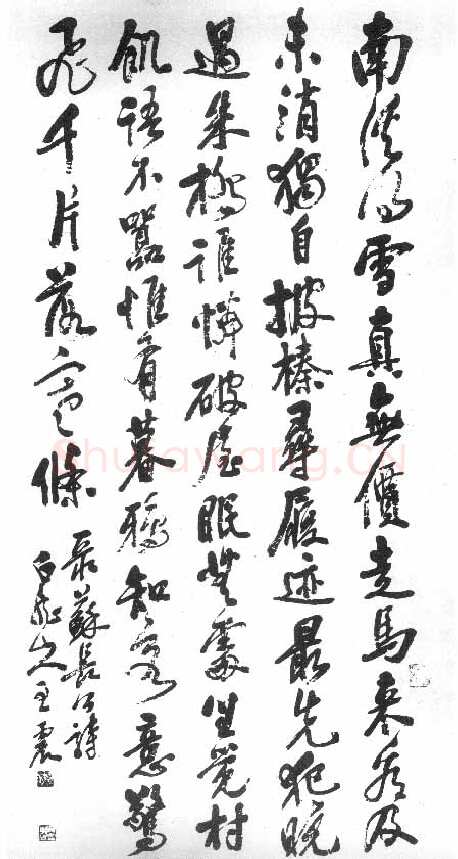 南溪得雪真無價走馬來看及
未消獨自披榛尋履迹最先犯曉
過朱橋誰憐破屋眠無處坐覺村
飢語不囂惟有暮鴉知客意驚
飛千片落寒條
录蘇長公詩
白龍山人王震
Shufawang.CN